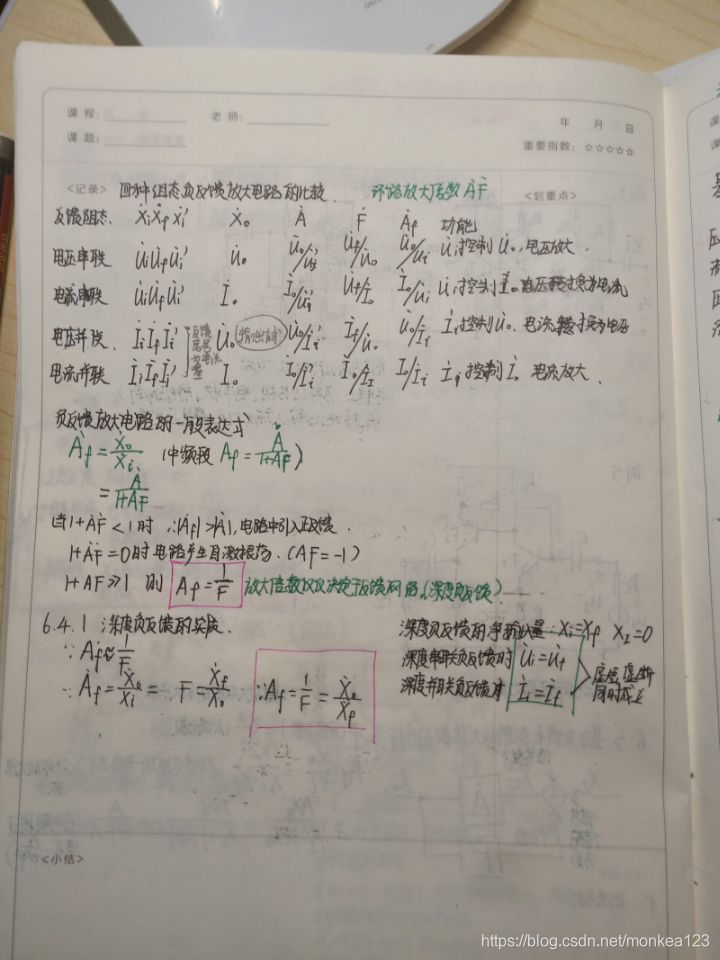 课程: 老师: 年 月 日
课题: 重要指数: ☆☆☆☆☆
<记录> 四种组态负反馈放大电路的比较. 环路放大系数 ȦḞ <划重点>
反馈组态. Ẋi Ẋf Ẋi' Ẋo Ȧ Ḟ Ȧf 功能
电压串联 U̇i U̇f U̇i' U̇o U̇o/U̇i' U̇f/U̇o U̇o/U̇i U̇i控制U̇o,电压放大.
电流串联 U̇i U̇f U̇i' İo İo/U̇i' U̇f/İo İo/U̇i U̇i控制İo 电压转换为电流
电压并联. İi İf İi' U̇o U̇o/İi' İf/U̇o U̇o/İi İi控制U̇o. 电流转换为电压
电流并联 İi İf İi' İo İo/İi' İo/İi İi控制İo 电流放大.
负反馈放大电路的一般表达式
Ȧf = Ẋo/Ẋi (中频段 Af = A/(1+AF))
= A/(1+AF)
当1+ȦḞ<1时 ∴|Ȧf|>|Ȧ|,电路中引入正反馈.
1+ȦḞ=0时电路产生自激振荡. (AF=-1)
1+AF≫1 则 Af = 1/F 放大倍数仅仅决定于反馈网络。(深度负反馈)
6.4.1 深度负反馈的实质.
深度负反馈的净输入量: Xi=Xf
∵ Af≈1/F
深度串联负反馈时 U̇i=U̇f
∵ Ȧf = Ẋo/Ẋi = F = Ẋf/Ẋo ∴Af = 1/F = Ẋo/Ẋf
深度并联负反馈时 İi=İf
虚短 虚断
同时存在
<小结>
https://blog.csdn.net/monkea123